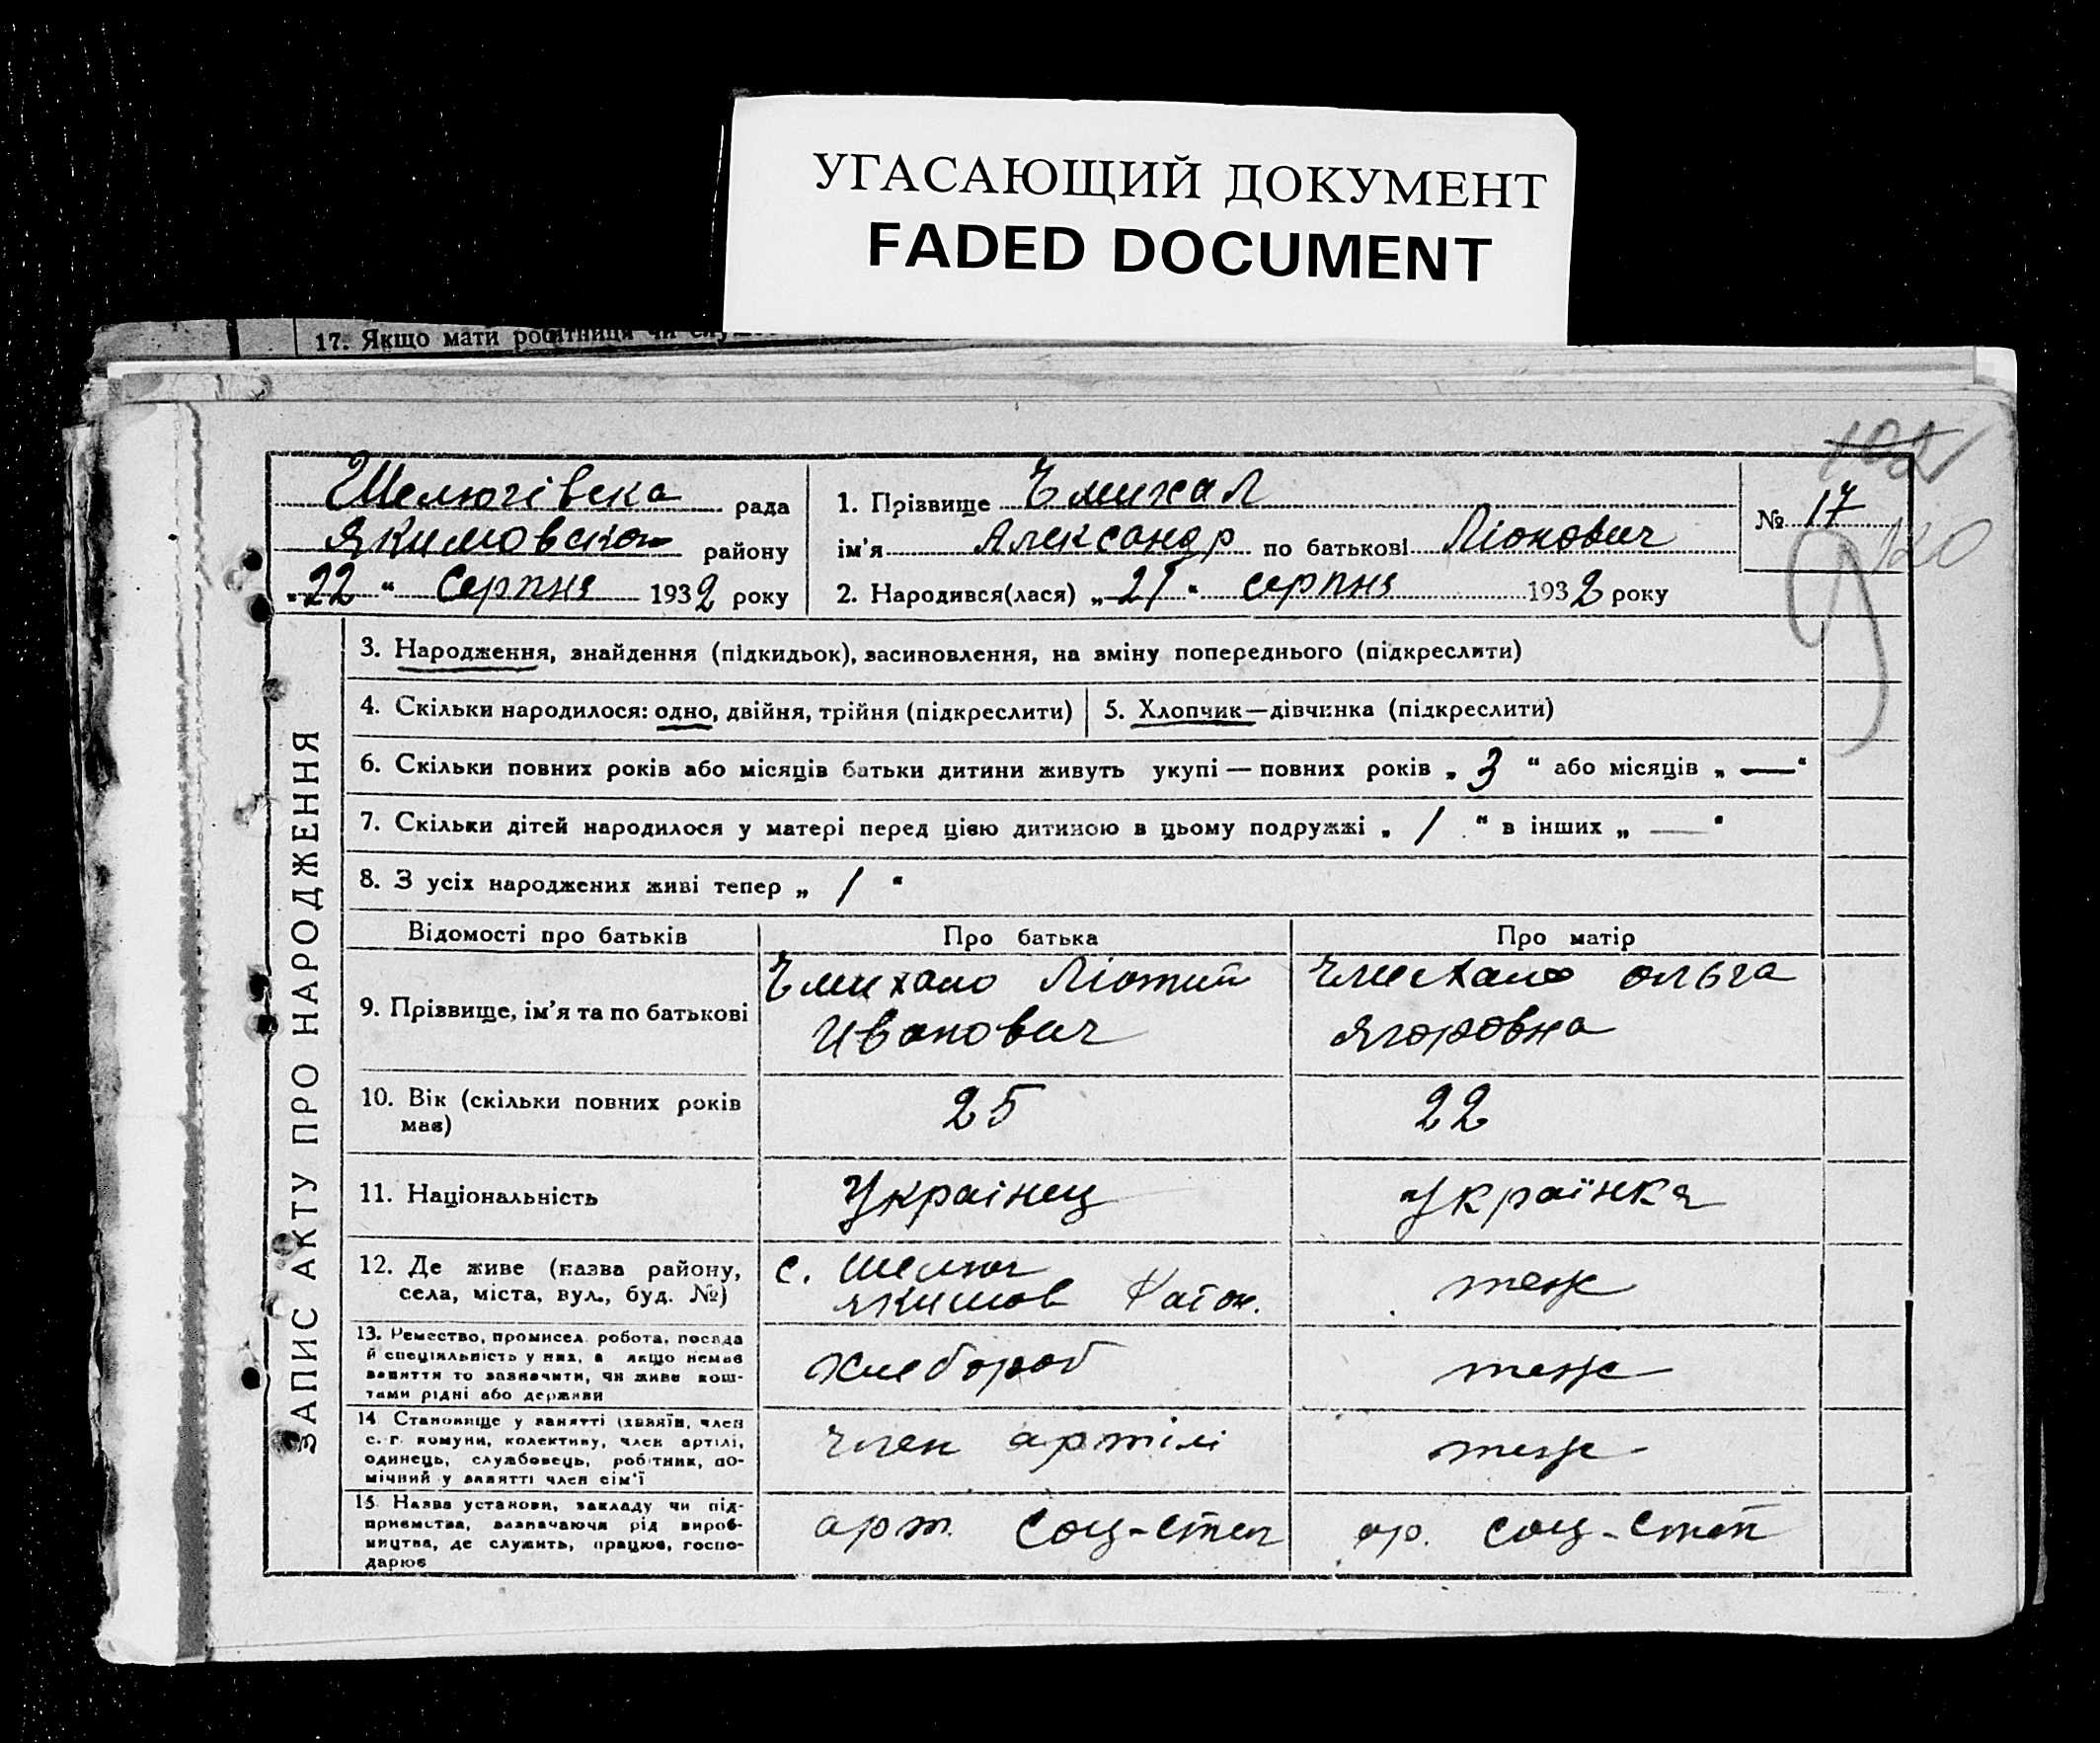 УГАСАЮЩИЙ ДОКУМЕНТ
FADED DOCUMENT
17. Якщо мати робітниця чи
102
Шелюгівска рада
Якимовскон району
„22“ Серпня 1932 року
1. Прізвище Чмихал
ім'я Александр по батькові
2. Народився(лася) „21“ серпня 1932 року
№ 17
120
ЗАПИС АКТУ ПРО НАРОДЖЕННЯ
3. Народження, знайдення (підкидьок), засиновлення, на зміну попереднього (підкреслити)
4. Скільки народилося: одно, двійня, трійня (підкреслити)
5. Хлопчик—дівчинка (підкреслити)
6. Скільки повних років або місяців батьки дитини живуть укупі — повних років „3“ або місяців „—“
7. Скільки дітей народилося у матері перед цією дитиною в цьому подружжі „1“ в інших „—“
8. З усіх народжених живі тепер „1“
Відомості про батьків Про батька Про матір
9. Прізвище, ім'я та по батькові
Чмихало
Ивонович
Чмихало ольга
Ягоровна
10. Вік (скільки повних років
має)
25
22
11. Національність
Українец
Українка
12. Де живе (назва району,
села, міста, вул., буд. №)
с. Шелюг
якимов Район.
теж
13. Ремество, промисел, робота, посада
й спеціяльність у них, а якщо немає
заняття то зазначити, чи живе кош-
тами рідні або держави
хлебороб
теж
14. Становище у занятті (хазяїн, член
с.-г. комуни, колективу, член артілі,
одинець, службовець, робітник, по-
мічний у занятті член сім'ї
член артілі
теж
15. Назва установи, закладу чи під-
приємства, зазначаючи рід вироб-
ництва, де служить, працює, госпо-
дарює
арт. Соц-степ
ар. соц-степ